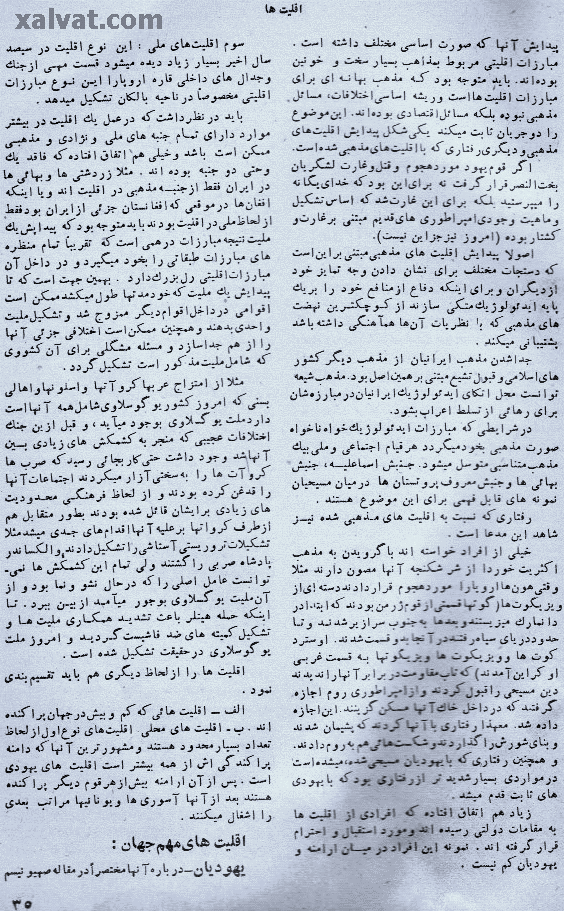 اقلیت ها
xalvat.com
پیدایش آنها که صورت اساسی مختلف داشته است .
مبارزات اقلیتی مربوط بمذاهب بسیار سخت و خونین
بوده‌اند. باید متوجه بود که مذهب بهانه ای برای
مبارزات اقلیت‌ها است و ریشه اساسی اختلافات، مسائل
مذهبی نبوده بلکه مسائل اقتصادی بوده‌اند. این موضوع
را دو جریان ثابت میکند یکی شکل پیدایش اقلیت‌های
مذهبی و دیگری رفتاری که با اقلیت‌های مذهبی شده است.
اگر قوم یهود مورد هجوم و قتل و غارت لشگریان
بخت‌النصر قرار گرفت نه برای این بود که خدای یگانه
را میپرستید بلکه برای این غارت شد که اساس تشکیل
و ماهیت وجودی امپراطوری های قدیم مبتنی بر غارت و
کشتار بوده (امروز نیز جز این نیست).
اصولا پیدایش اقلیت های مذهبی مبتنی بر این است
که دستجات مختلف برای نشان دادن وجه تمایز خود
از دیگران و برای اینکه دفاع از منافع خود را بر یک
پایه ایدئولوژیک متکی سازند از کوچکترین نهضت
های مذهبی که با نظریات آن‌ها هم‌آهنگی داشته باشد
پشتیبانی میکنند .
جدا شدن مذهب ایرانیان از مذهب دیگر کشور
های اسلامی و قبول تشیع مبتنی بر همین اصل بود. مذهب شیعه
توانست محل اتکای ایدئولوژیک ایرانیان در مبارزه‌شان
برای رهائی از تسلط اعراب بشود.
در شرایطی که مبارزات ایدئولوژیک خواه ناخواه
صورت مذهبی بخود میگیرد هر قیام اجتماعی و ملی بیک
مذهب متناسبی متوسل میشود. جنبش اسماعلیسه، جنبش
بهائی ها و جنبش معروف پروتستان ها در میان مسیحیان
نمونه های قابل فهمی برای این موضوع هستند .
رفتاری که نسبت به اقلیت های مذهبی شده نیز
شاهد این مدعا است .
خیلی از افراد خواسته اند با گرویدن به مذهب
اکثریت خود را از شر شکنجه آنها مصون دارند مثلا
وقتی هون‌ها اروپا را مورد هجوم قرار دادند دسته‌ای از
ویزیگوت‌ها (گوتها قسمتی از قوم ژرمن بودند که ابتدا در
دانمارک میزیستند و بعدها به جنوب سرازیر شدند و تا
حدود دریای سیاه رفتند در آنجا بدو قسمت شدند. اوسترد
کوت ها و ویزیگوت ها ویزیگوتها به قسمت غربی
اوکراین آمدند) که تاب مقاومت در برابر آنها را ندیدند
دین مسیحی را قبول کردند و از امپراطوری روم اجازه
گرفتند که در داخل خاک آنها مسکن گزینند. این اجازه
داده شد. معهذا رفتاری با آنها کردند که پشیمان شدند
و بنای شورش را گذاردند و شکست‌هائی هم به روم دادند.
و همچنین رفتاری که با یهودیان مسیحی شده، میشده است
در مواردی بسیار شدید تر از رفتاری بود که با یهودی
های ثابت قدم میشد .
زیاد هم اتفاق افتاده که افرادی از اقلیت ها
به مقامات دولتی رسیده اند و مورد استقبال و احترام
قرار گرفته اند . نمونه این افراد در میان ارامنه و
یهودیان کم نیست .
سوم اقلیت‌های ملی : این نوع اقلیت در سیصد
سال اخیر بسیار زیاد دیده میشود قسمت مهمی از جنک
و جدال های داخلی قاره اروپا را این نوع مبارزات
اقلیتی مخصوصا در ناحیه بالکان تشکیل میدهد .
باید در نظر داشت که در عمل یك اقلیت در بیشتر
موارد دارای تمام جنبه های ملی و نژادی و مذهبی
ممکن است باشد و خیلی هم اتفاق افتاده که فاقد یك
وحتی دو جنبه بوده اند . مثلا زردشتی ها و بهائی ها
در ایران فقط از جنبه مذهبی در اقلیت اند و یا اینکه
افغان‌ها در موقعی که افغانستان جزئی از ایران بود فقط
از لحاظ ملی در اقلیت بودند باید متوجه بود که پیدایش یك
ملیت نتیجه مبارزات درهمی است که تقریباً تمام منظره
های مبارزات طبقاتی را بخود میگیرد و در داخل آن
مبارزات اقلیتی رل بزرك دارد . بهمین جهت است که تا
پیدایش یك ملیت که خود مدتها طول میکشد ممکن است
اقوامی در داخل اقوام دیگر ممزوج شد و تشکیل ملیت
واحدی بدهند و همچنین ممکن است اختلافی جزئی آنها
را از هم جدا سازد و مسئله مشکلی برای آن کشوری
که شامل ملیت مذکور است تشکیل گردد.
مثلا از امتزاج عربها کروآتها و اسلونها و اهالی
بسنی که امروز کشور یوگوسلاوی شامل همه آنها است
دارد ملت یوگسلاوی بوجود میآید ، و قبل از بین جنك
اختلافات عجیبی که منجر به کشمکش های زیادی بین
آنها شد وجود داشت حتی کار بجائی رسید که صرب ها
کروآت ها را به‌سختی آزار میکردند اجتماعات آنها
را قدغن کرده بودند و از لحاظ فرهنگی محدودیت
های زیادی برایشان قائل شده بودند بطور متقابل هم
از طرف کرواتها بر علیه آنها اقدام‌های جدی میشد مثلا
تشکیلات تروریستی آستاشی را تشکیل دادند و الکساندر
پادشاه صربی را گشتند ولی تمام این کشمکش ها نمی‌-
توانست عامل اصلی را که در حال نشو و نما بود و از
آن ملیت یوگسلاوی بوجود میآمد از بین ببرد . تا
اینکه حمله هیتلر باعث تشدید همکاری ملیت ها و
تشکیل کمیته های ضد فاشیست گردید و امروز ملت
یوگوسلاوی در حقیقت تشکیل شده است .
اقلیت ها را از لحاظ دیگری هم باید تقسیم‌بندی
نمود .
الف ـ اقلیت هائی که کم و بیش در جهان پراکنده
اند . ب ـ اقلیت های محلی. اقلیت‌های نوع اول از لحاظ
تعداد بسیار محدود هستند و مشهورترین آنها که دامنه
پراکندگی اش از همه بیشتر است اقلیت های یهودی
است . پس از آن ارامنه بیش از هر قوم دیگر پراکنده
هستند بعد از آنها آسوری ها و یونانیها مراتب بعدی
را اشغال میکنند .
اقلیت های مهم جهان :
یهودیان ـ در باره آنها مختصراً در مقاله صهیونیسم
۳۵